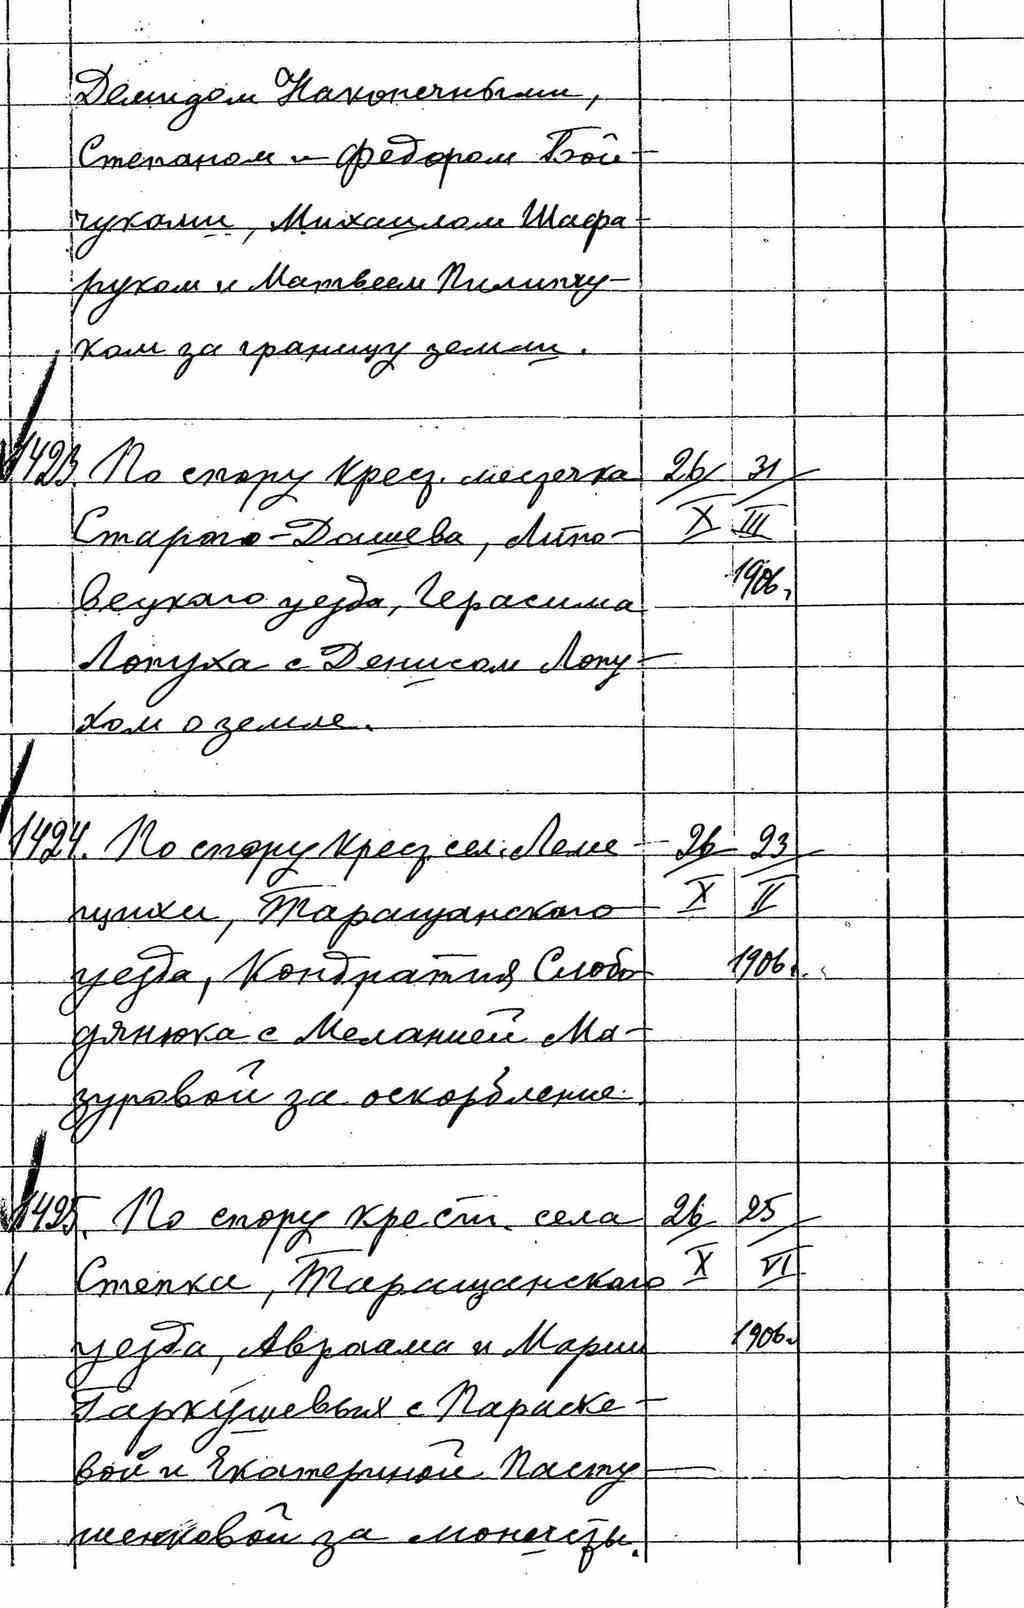 Демидом Наконечными,
Степаном и Федором Бой-
чуками, Михаилом Шафа-
руком и Матвеем Пилипчу-
ком за границу земли.
1423. По спору крест. местечка 26/X 31/III
Старого-Дашева, Липо-
вецкаго уезда, Герасима 1906 г.
Лопуха с Денисом Лопу-
хом о земле.
1424. По спору крест. сел. Леме- 26/X 23/II
щихи, Таращанского
уезда, Кондратия Слобо 1906 г.
дянюка с Меланией Ма-
зуровой за оскорбление.
1425. По спору крест. села 26/X 25/VI
Степка, Таращанского
уезда, Авраама и Марии 1906 г.
Гаркушевых с Параске-
вой и Екатериной Пасту
шенковой за монисты.